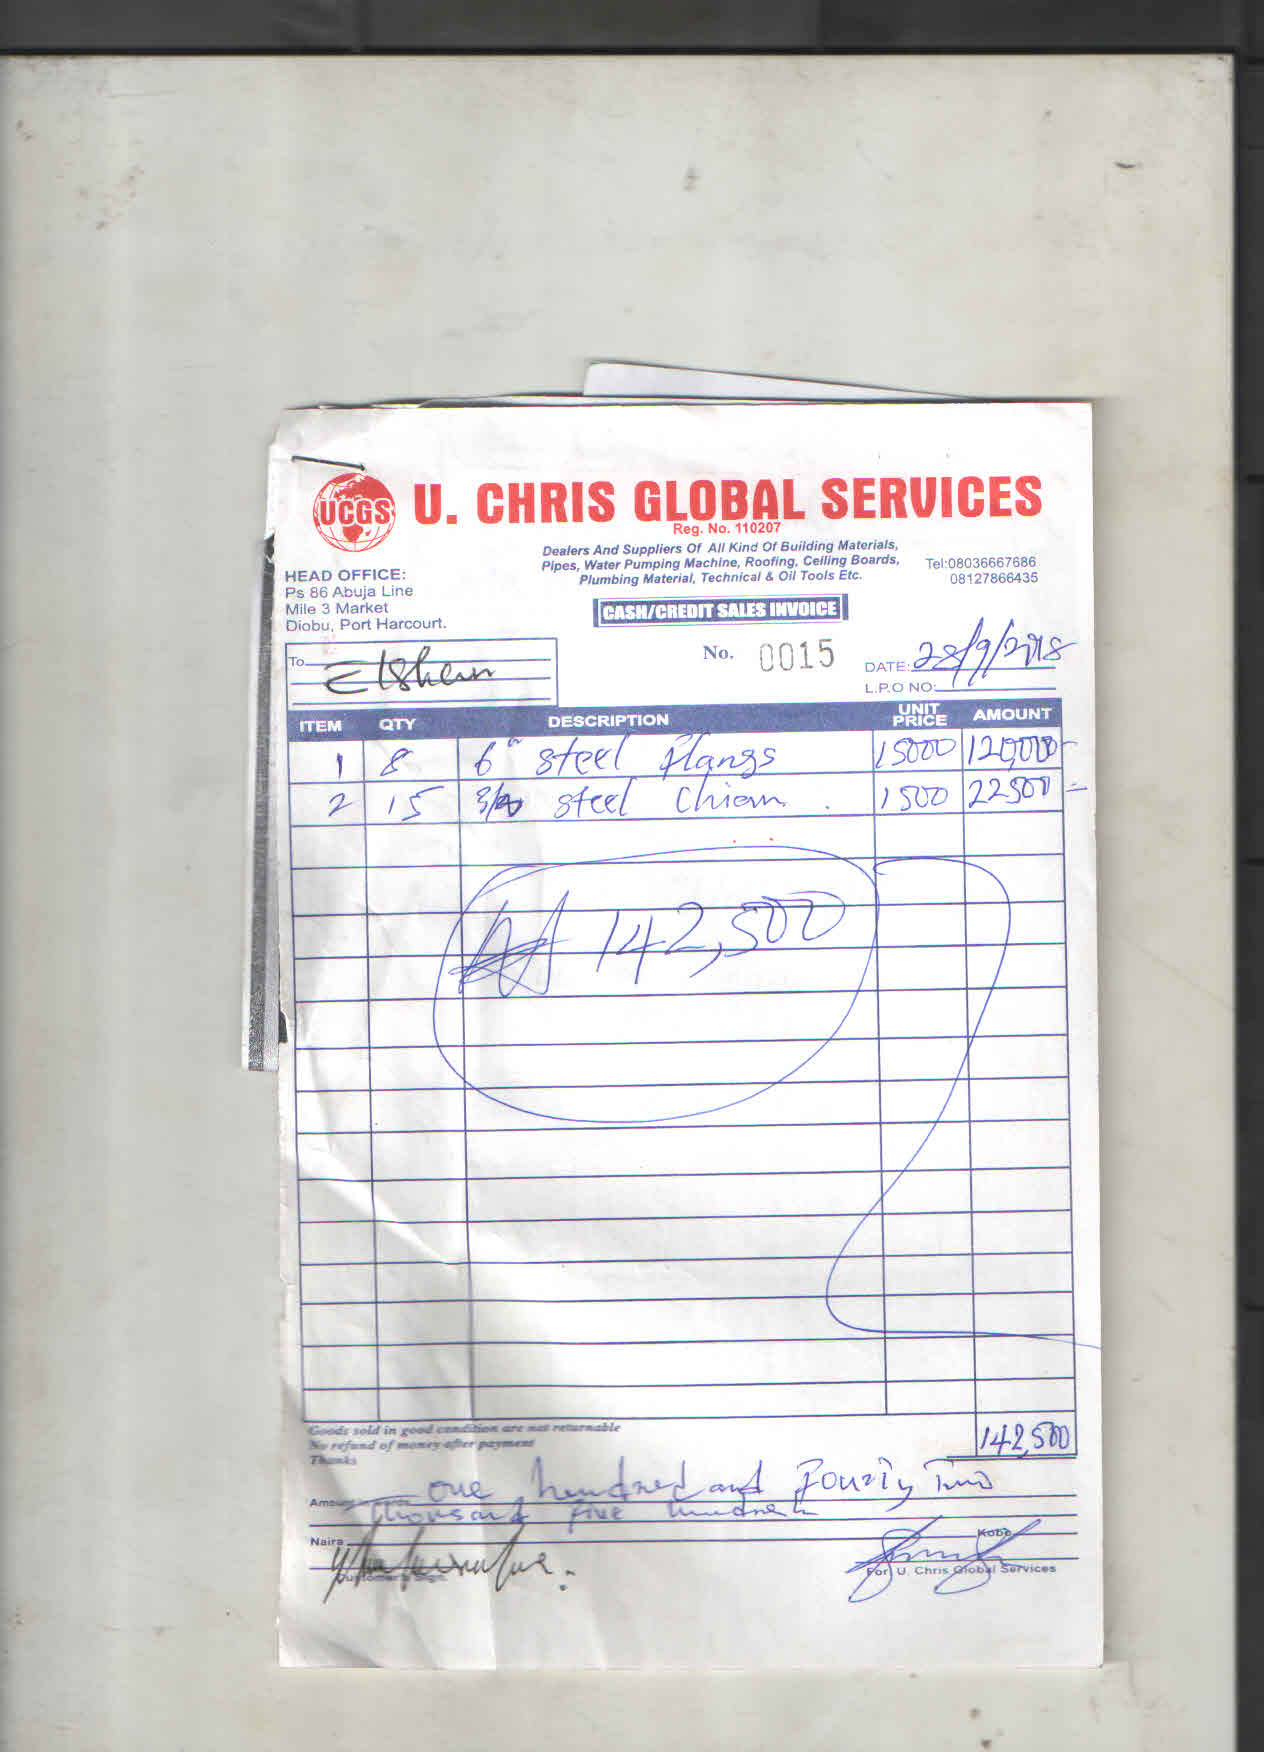 UCGS
U. CHRIS GLOBAL SERVICES
Reg. No. 110207
Dealers And Suppliers Of All Kind Of Building Materials,
Pipes, Water Pumping Machine, Roofing, Ceiling Boards,
Plumbing Material, Technical & Oil Tools Etc.
Tel:08036667686
08127866435
HEAD OFFICE:
Ps 86 Abuja Line
Mile 3 Market
Diobu, Port Harcourt.
CASH/CREDIT SALES INVOICE
To
No. 0015
DATE: 28/9/2018
L.P.O NO:
ITEM QTY DESCRIPTION UNIT PRICE AMOUNT
1 8 6" steel flangs 15000 120,000
2 15 steel Chiem 1500 22500 =
₦ 142,500
Goods sold in good condition are not returnable
No refund of money after payment
Thanks
142,500
Amount in words one hundred and Fourty Two
Thousand five hundred
Naira Kobo
Customer's Sign.
For U. Chris Global Services